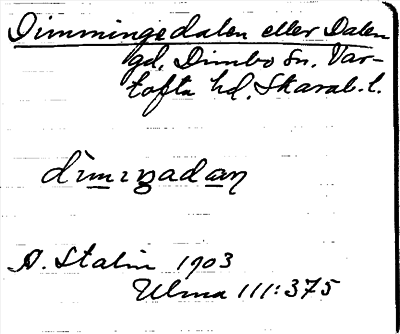 Dimmingedalen eller Dalen
gd, Dimbo sn. Var-
tofta hd. Skarab. l.
dìmıŋadaɳ
A. Stalin 1903
Ulma 111:375